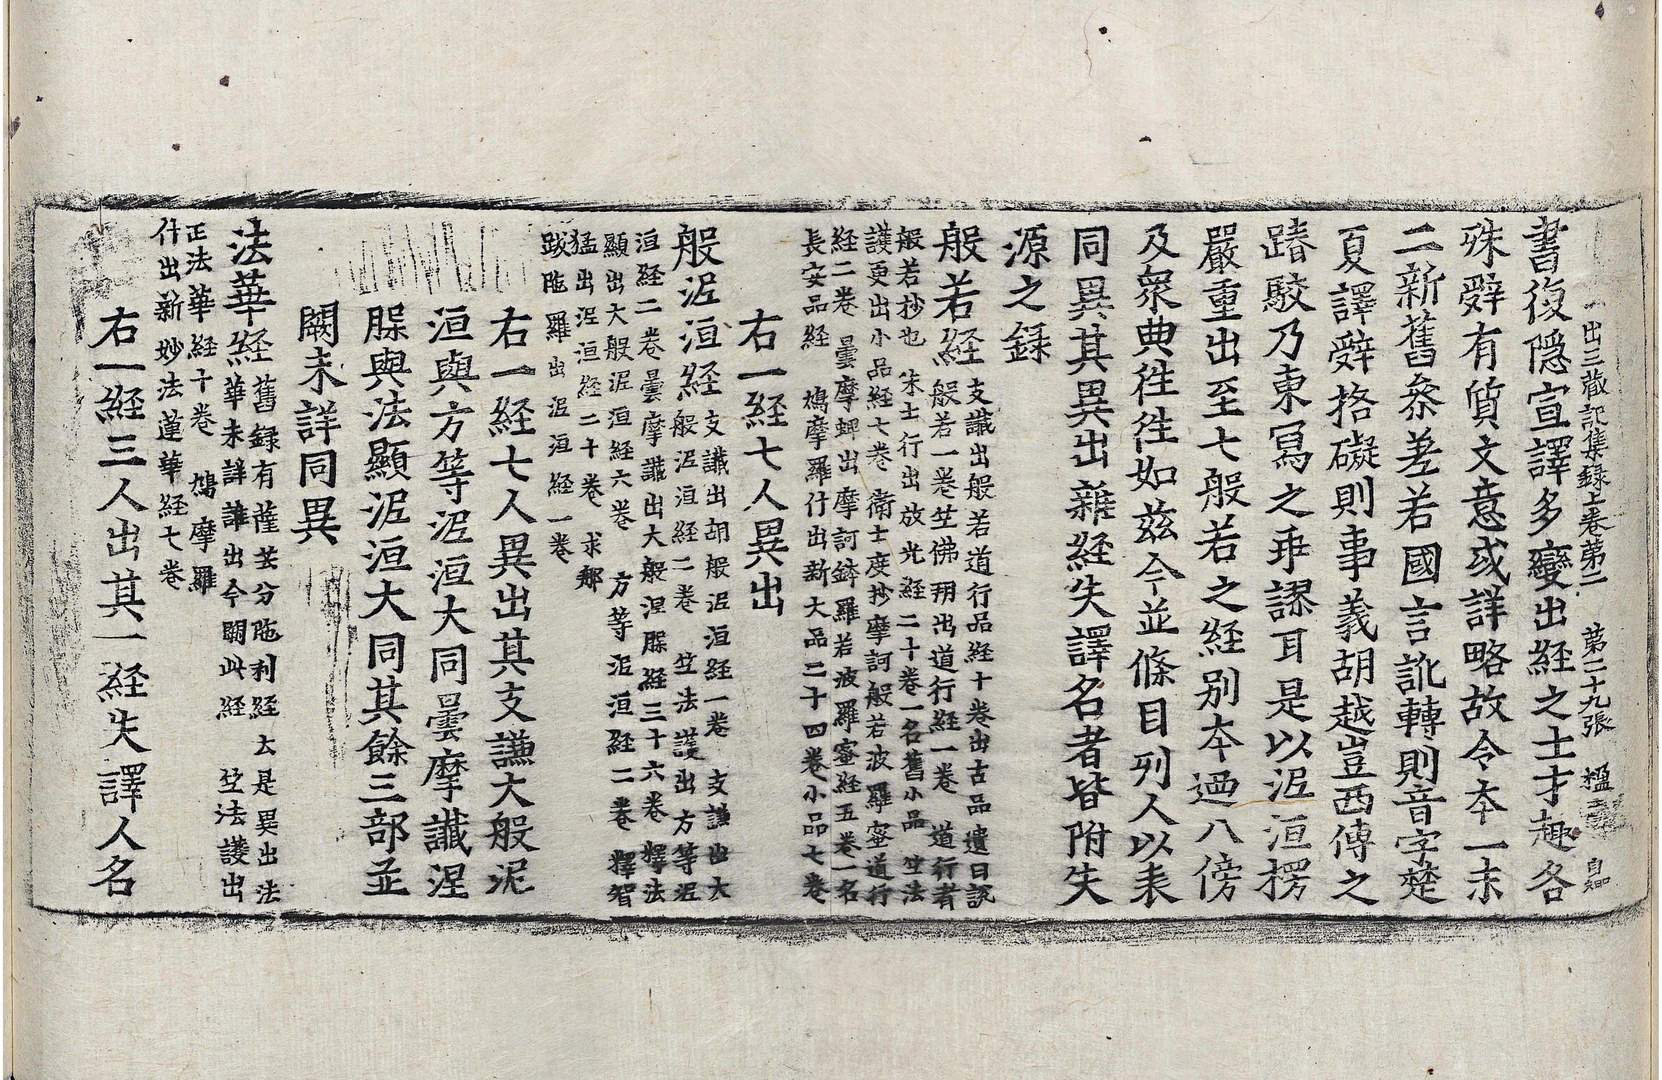 出三藏記集錄上卷第二 第二十九張 楹
書復隱宣譯多變出經之士才趣各
殊辤有質文意或詳略故令本一末
二新舊叅差若國言訛轉則音字楚
夏譯辤格礙則事義胡越豈西傳之
踳駮乃東寫之乖謬耳是以泥洹楞
嚴重出至七般若之經別本廼八傍
及衆典往往如兹今並條目列人以表
同異其異出雜經失譯名者皆附失
源之錄
般若經
支讖出般若道行品經十卷出古品遺日說
般若一卷竺佛朔出道行經一卷 道行者
般若抄也 朱士行出放光經二十卷一名舊小品 竺法
護更出小品經七卷 衛士度抄摩訶般若波羅蜜道行
經二卷 曇摩蜱出摩訶鉢羅若波羅蜜經五卷一名
長安品經 鳩摩羅什出新大品二十四卷小品七卷
右一經七人異出
般泥洹經
支讖出胡般泥洹經一卷 支謙出大
般泥洹經二卷 竺法護出方等泥
洹經二卷曇摩讖出大般涅腅經三十六卷 釋法
顯出大般泥洹經六卷 方等泥洹經二卷 釋智
猛出泥洹經二十卷 求郍
跋陁羅出泥洹經一卷
右一經七人異出其支謙大般泥
洹與方等泥洹大同曇摩讖涅
腅與法顯泥洹大同其餘三部並
闕未詳同異
法華經
舊錄有薩芸分陁利經云是異出法
華未詳誰出今闕此經 竺法護出
正法華經十卷 鳩摩羅
什出新妙法蓮華經七卷
右一經三人出其一經失譯人名